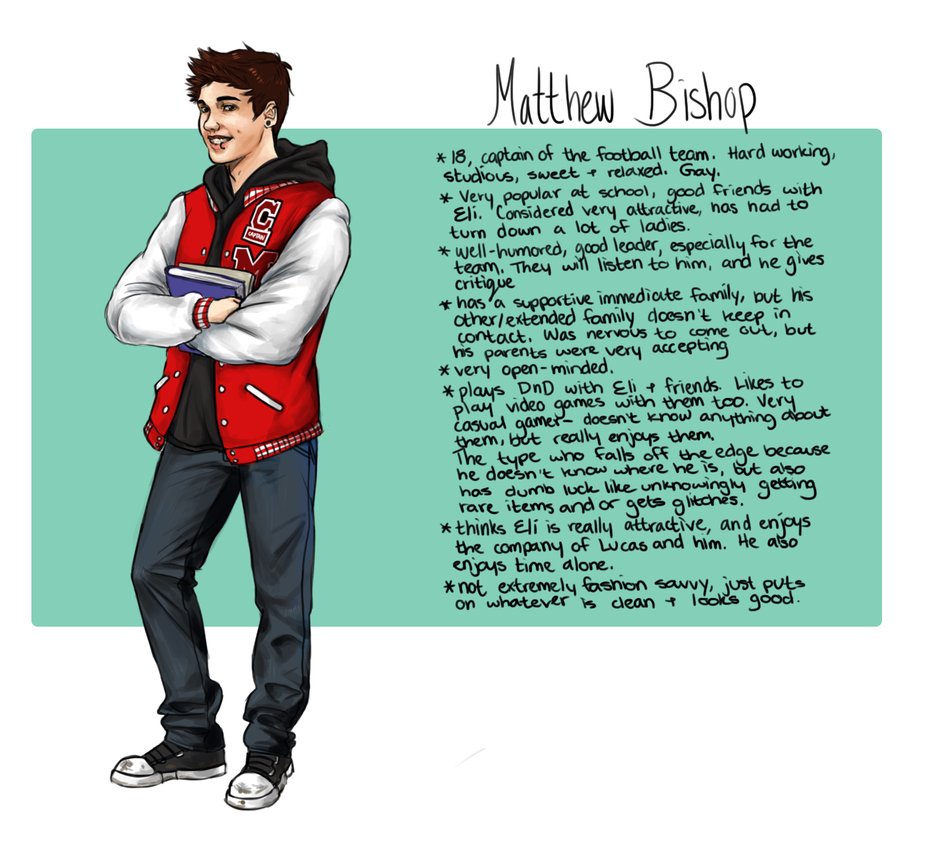 Matthew Bishop
C
CAPTAIN
M
* 18, captain of the football team. Hard working,
studious, sweet + relaxed. Gay.
* Very popular at school, good friends with
Eli. Considered very attractive, has had to
turn down a lot of ladies.
* well-humored, good leader, especially for the
team. They will listen to him, and he gives
critique
* has a supportive immediate family, but his
other/extended family doesn't keep in
contact. Was nervous to come out, but
his parents were very accepting
* very open-minded.
* plays DnD with Eli + friends. Likes to
play video games with them too. Very
casual gamer- doesn't know anything about
them, but really enjoys them.
The type who falls off the edge because
he doesn't know where he is, but also
has dumb luck like unknowingly getting
rare items and or gets glitches.
* thinks Eli is really attractive, and enjoys
the company of Lucas and him. He also
enjoys time alone.
* not extremely fashion savvy, just puts
on whatever is clean + looks good.